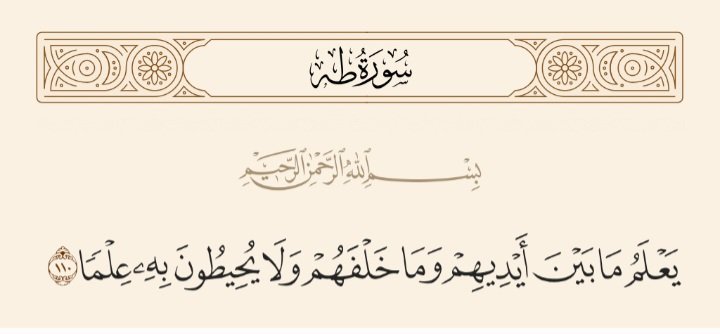 سُورَةُ طه
بِسْمِ ٱللَّهِ ٱلرَّحْمَٰنِ ٱلرَّحِيمِ
يَعْلَمُ مَا بَيْنَ أَيْدِيهِمْ وَمَا خَلْفَهُمْ وَلَا يُحِيطُونَ بِهِۦ عِلْمًا ١١٠